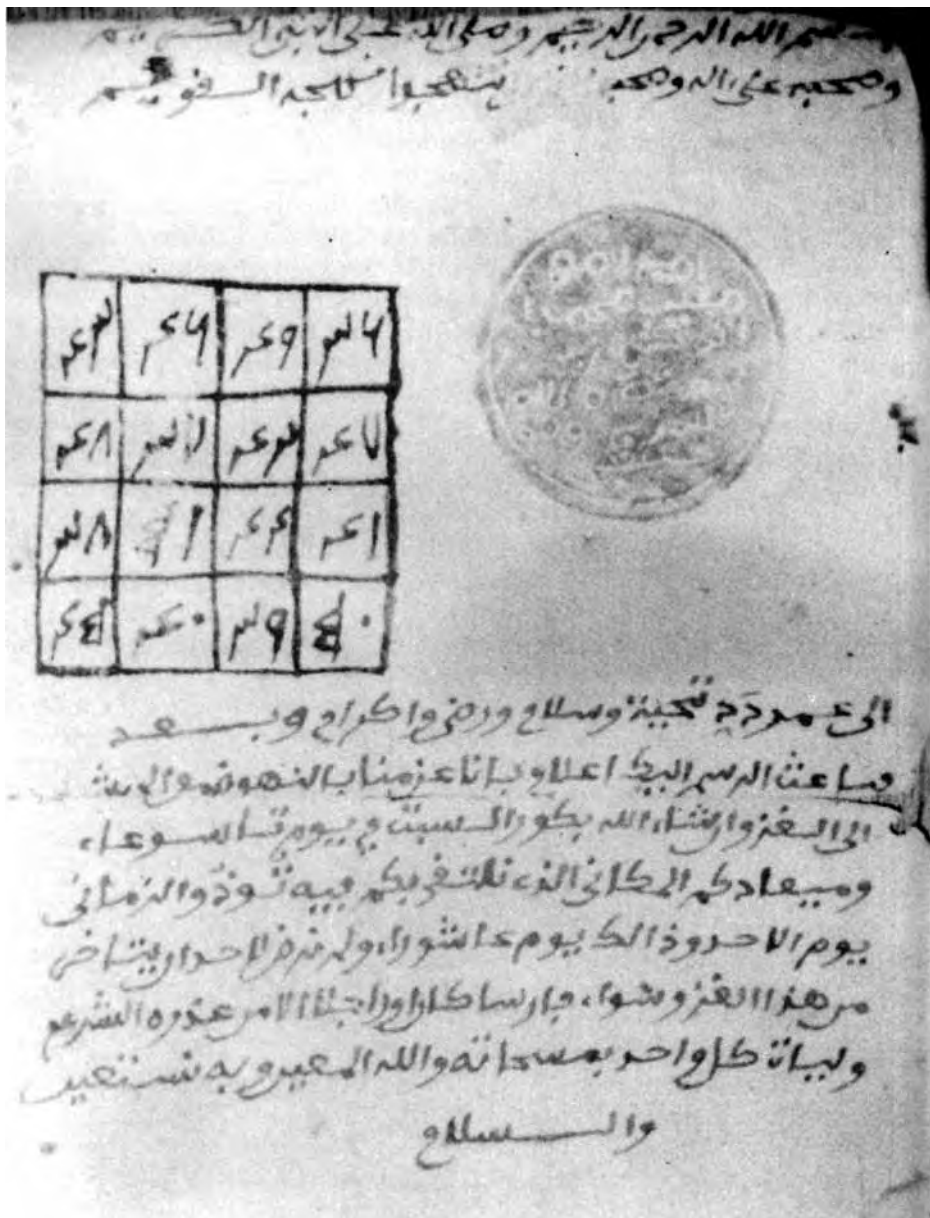 بسم الله الرحمن الرحيم وصلى الله على النبي الكريم
وصحبه على اله وصحبه
امير المو
٣٤ ٤٦ ٤٩ ٣٦
٤٨ ٣٧ ٤٣ ٤٧
٣٨ ٥١ ٤٤ ٤١
٤٥ ٤٠ ٣٩ ٥٠
الى عمر دد تحية وسلام ورضى واكرام وبعد
فباعث الرسم اليك اعلام بانا عزمنا بالنهوض والمشى
الى الغزو ان شاء الله بكور السبت م يوم تاسوعاء
وميعادكم المكانى الذى نلتقى بكم فيه الزمانى
يوم الاحد وذالك يوم عاشوراء ولم نرض لاحد ان يتاخر
من هذا الغزو سواء فارسا كان او راجلا الا من عذره الشرع
وليات كل واحد بمسحاته والله المعين وبه نستعين
والسلام